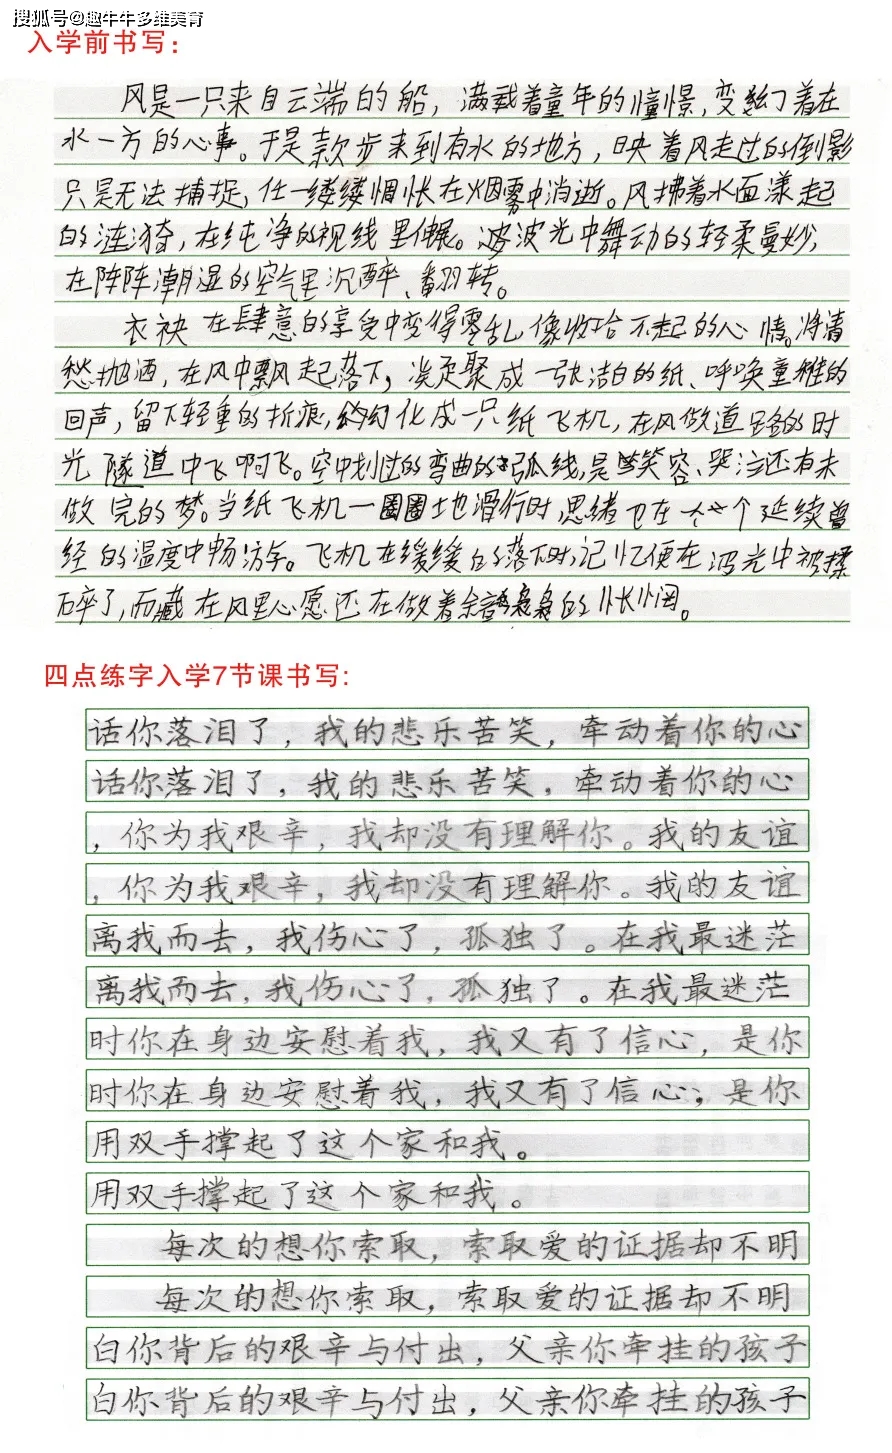 搜狐号@趣牛牛多维美育
入学前书写：
风是一只来自云端的船，满载着童年的憧憬，变幻着在
水一方的心事。于是款步来到有水的地方，映着风走过的倒影
只是无法捕捉，任一缕缕惆怅在烟雾中消逝。风拂着水面漾起
的涟漪，在纯净的视线里伸展。波光中舞动的轻柔曼妙，
在阵阵潮湿的空气里沉醉、翻转。
衣袂在肆意的享受中变得零乱像收拾不起的心情。将清
愁抛洒，在风中飘起落下，凝聚成一张洁白的纸、呼唤童稚的
回声，留下轻重的折痕，幻化成一只纸飞机，在风做道路的时
光隧道中飞啊飞。空中划过的弯曲的弧线，是笑容、哭泣还有未
做完的梦。当纸飞机一圈圈地滑行时，思绪也在一个个延续曾
经的温度中畅游。飞机在缓缓的落下时，记忆便在泻光中被揉
碎了，而藏在风里心愿还在做着余音袅袅的怅惘。
四点练字入学7节课书写：
话你落泪了，我的悲乐苦笑，牵动着你的心
话你落泪了，我的悲乐苦笑，牵动着你的心
，你为我艰辛，我却没有理解你。我的友谊
，你为我艰辛，我却没有理解你。我的友谊
离我而去，我伤心了，孤独了。在我最迷茫
离我而去，我伤心了，孤独了。在我最迷茫
时你在身边安慰着我，我又有了信心，是你
时你在身边安慰着我，我又有了信心，是你
用双手撑起了这个家和我。
用双手撑起了这个家和我。
每次的想你索取，索取爱的证据却不明
每次的想你索取，索取爱的证据却不明
白你背后的艰辛与付出，父亲你牵挂的孩子
白你背后的艰辛与付出，父亲你牵挂的孩子